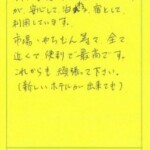 が、安心して、泊れる、宿として、
利用しています。
市場・やちむん等々で、全て
近くて便利で最高です。
これからも頑張って下さい。
(新しいホテルが出来ても)